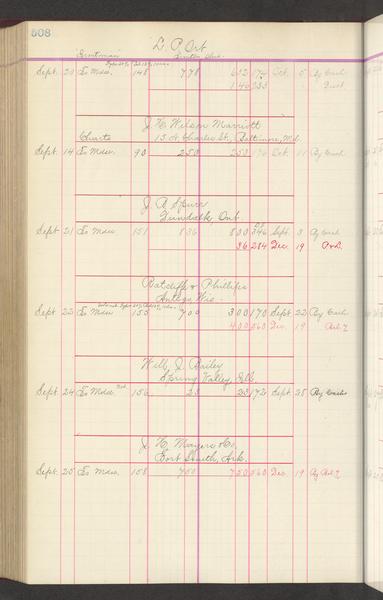 508
L. P. Ort
Sept. 20 To Mdse. 148 778 632 174 Oct. 5 By Cash
1.46 233 " Disct.
J. H. Wilson Marriott
Charts 13 N. Charles St., Baltimore, Md.
Sept. 14 To Mdse. 90 250 250 176 Oct. 11 By Cash
J. A. Spurr
Dundalk Ont.
Sept. 21 To Mdse. 151 836 800 346 Sept. 3 By Cash
36 284 Dec. 19 P&L
Ratcliff & Phillips
Antigo, Wis.
Sept. 22 To Mdse. 155 700 300 170 Sept. 22 By Cash
400 560 Dec. 19 "
Will J. Bailey
Spring Valley, Ill.
Sept. 24 To Mdse. 156 23 23 172 Sept. 25 By Cash
J. H. Mayers & Co.
Fort Smith, Ark.
Sept. 25 To Mdse. 158 750 750 560 Dec. 19 By